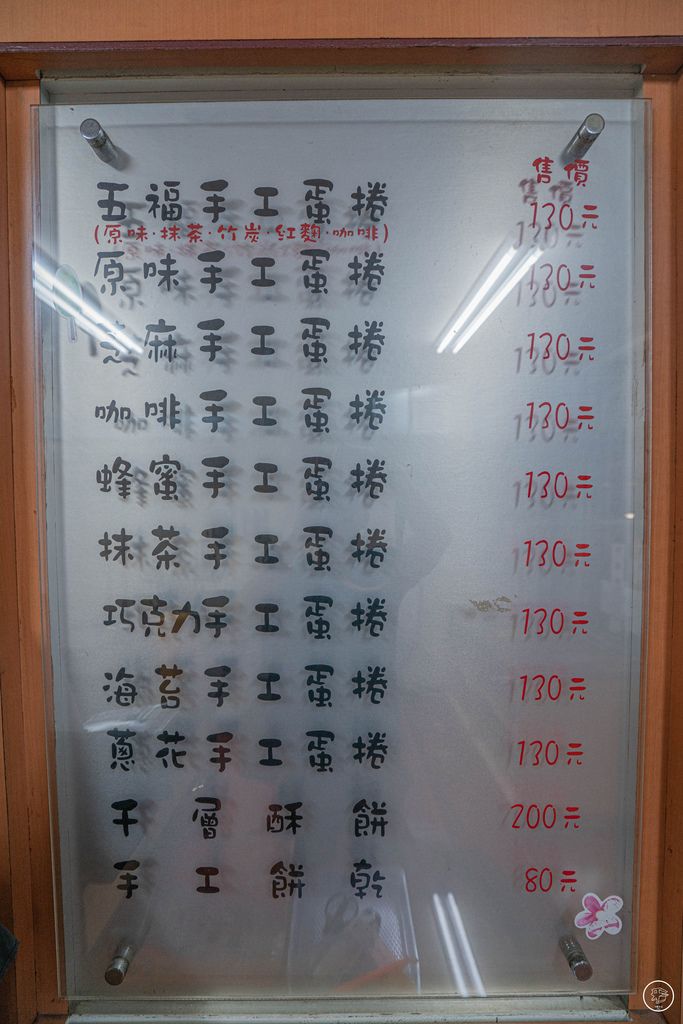 售價
五福手工蛋捲 130元
(原味·抹茶·竹炭·紅麴·咖啡)
原味手工蛋捲 130元
芝麻手工蛋捲 130元
咖啡手工蛋捲 130元
蜂蜜手工蛋捲 130元
抹茶手工蛋捲 130元
巧克力手工蛋捲 130元
海苔手工蛋捲 130元
蔥花手工蛋捲 130元
千層酥餅 200元
手工餅乾 80元